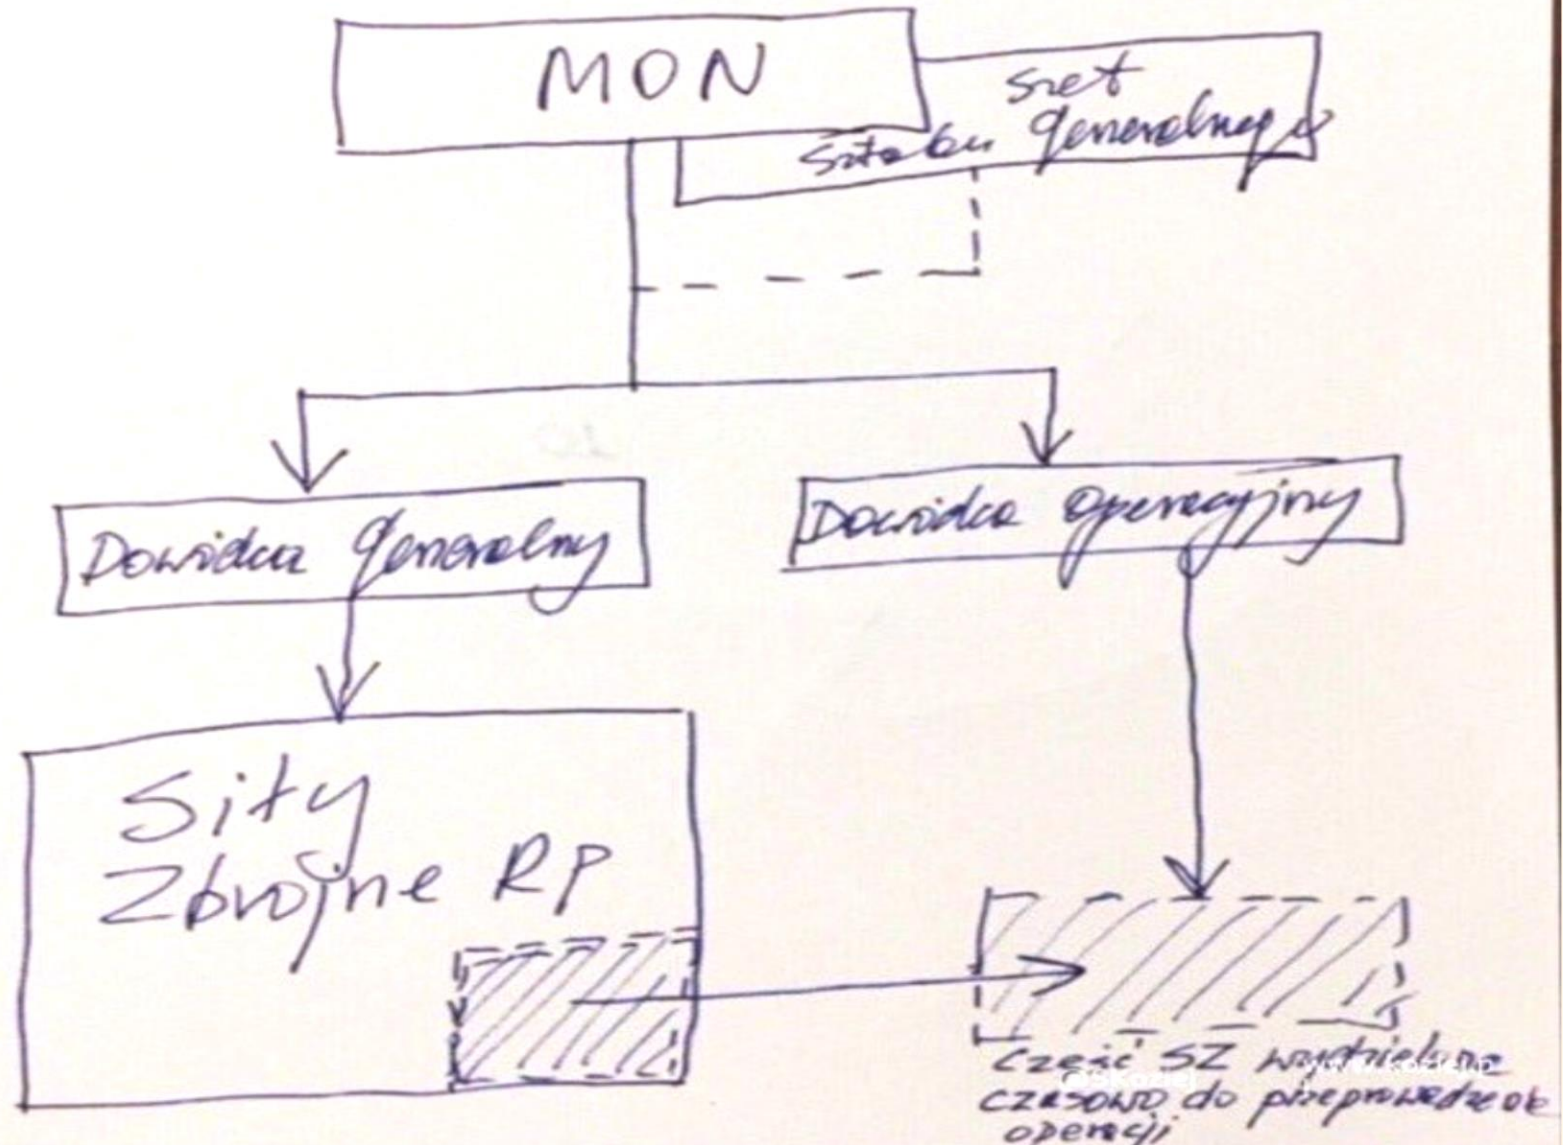 MON
Szef
Sztabu Generalnego
Dowódca Generalny
Dowódca Operacyjny
Siły
Zbrojne RP
część SZ wydzielone
@SKoziej
www.koziej.pl
czasowo do przeprowadzenia
operacji